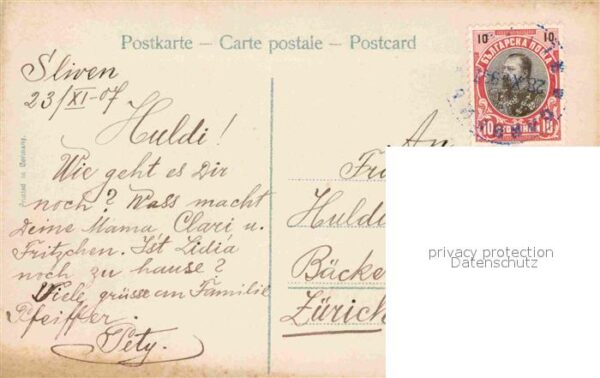 Postkarte – Carte postale – Postcard
Sliven
23/XI-07
Huldi!
Wie geht es Dir
noch? Wass macht
Deine Mama, Clari u.
Fritzchen. Ist Lidia
noch zu hause?
Viele grüsse an Familie
Pfeiffer.
Pety.
Printed in Germany.
10 10
БЪЛГАРСКА ПОЩА
10 СТОТИНКИ 10
An
Huldi
Bäcke
Zürich
privacy protection
Datenschutz